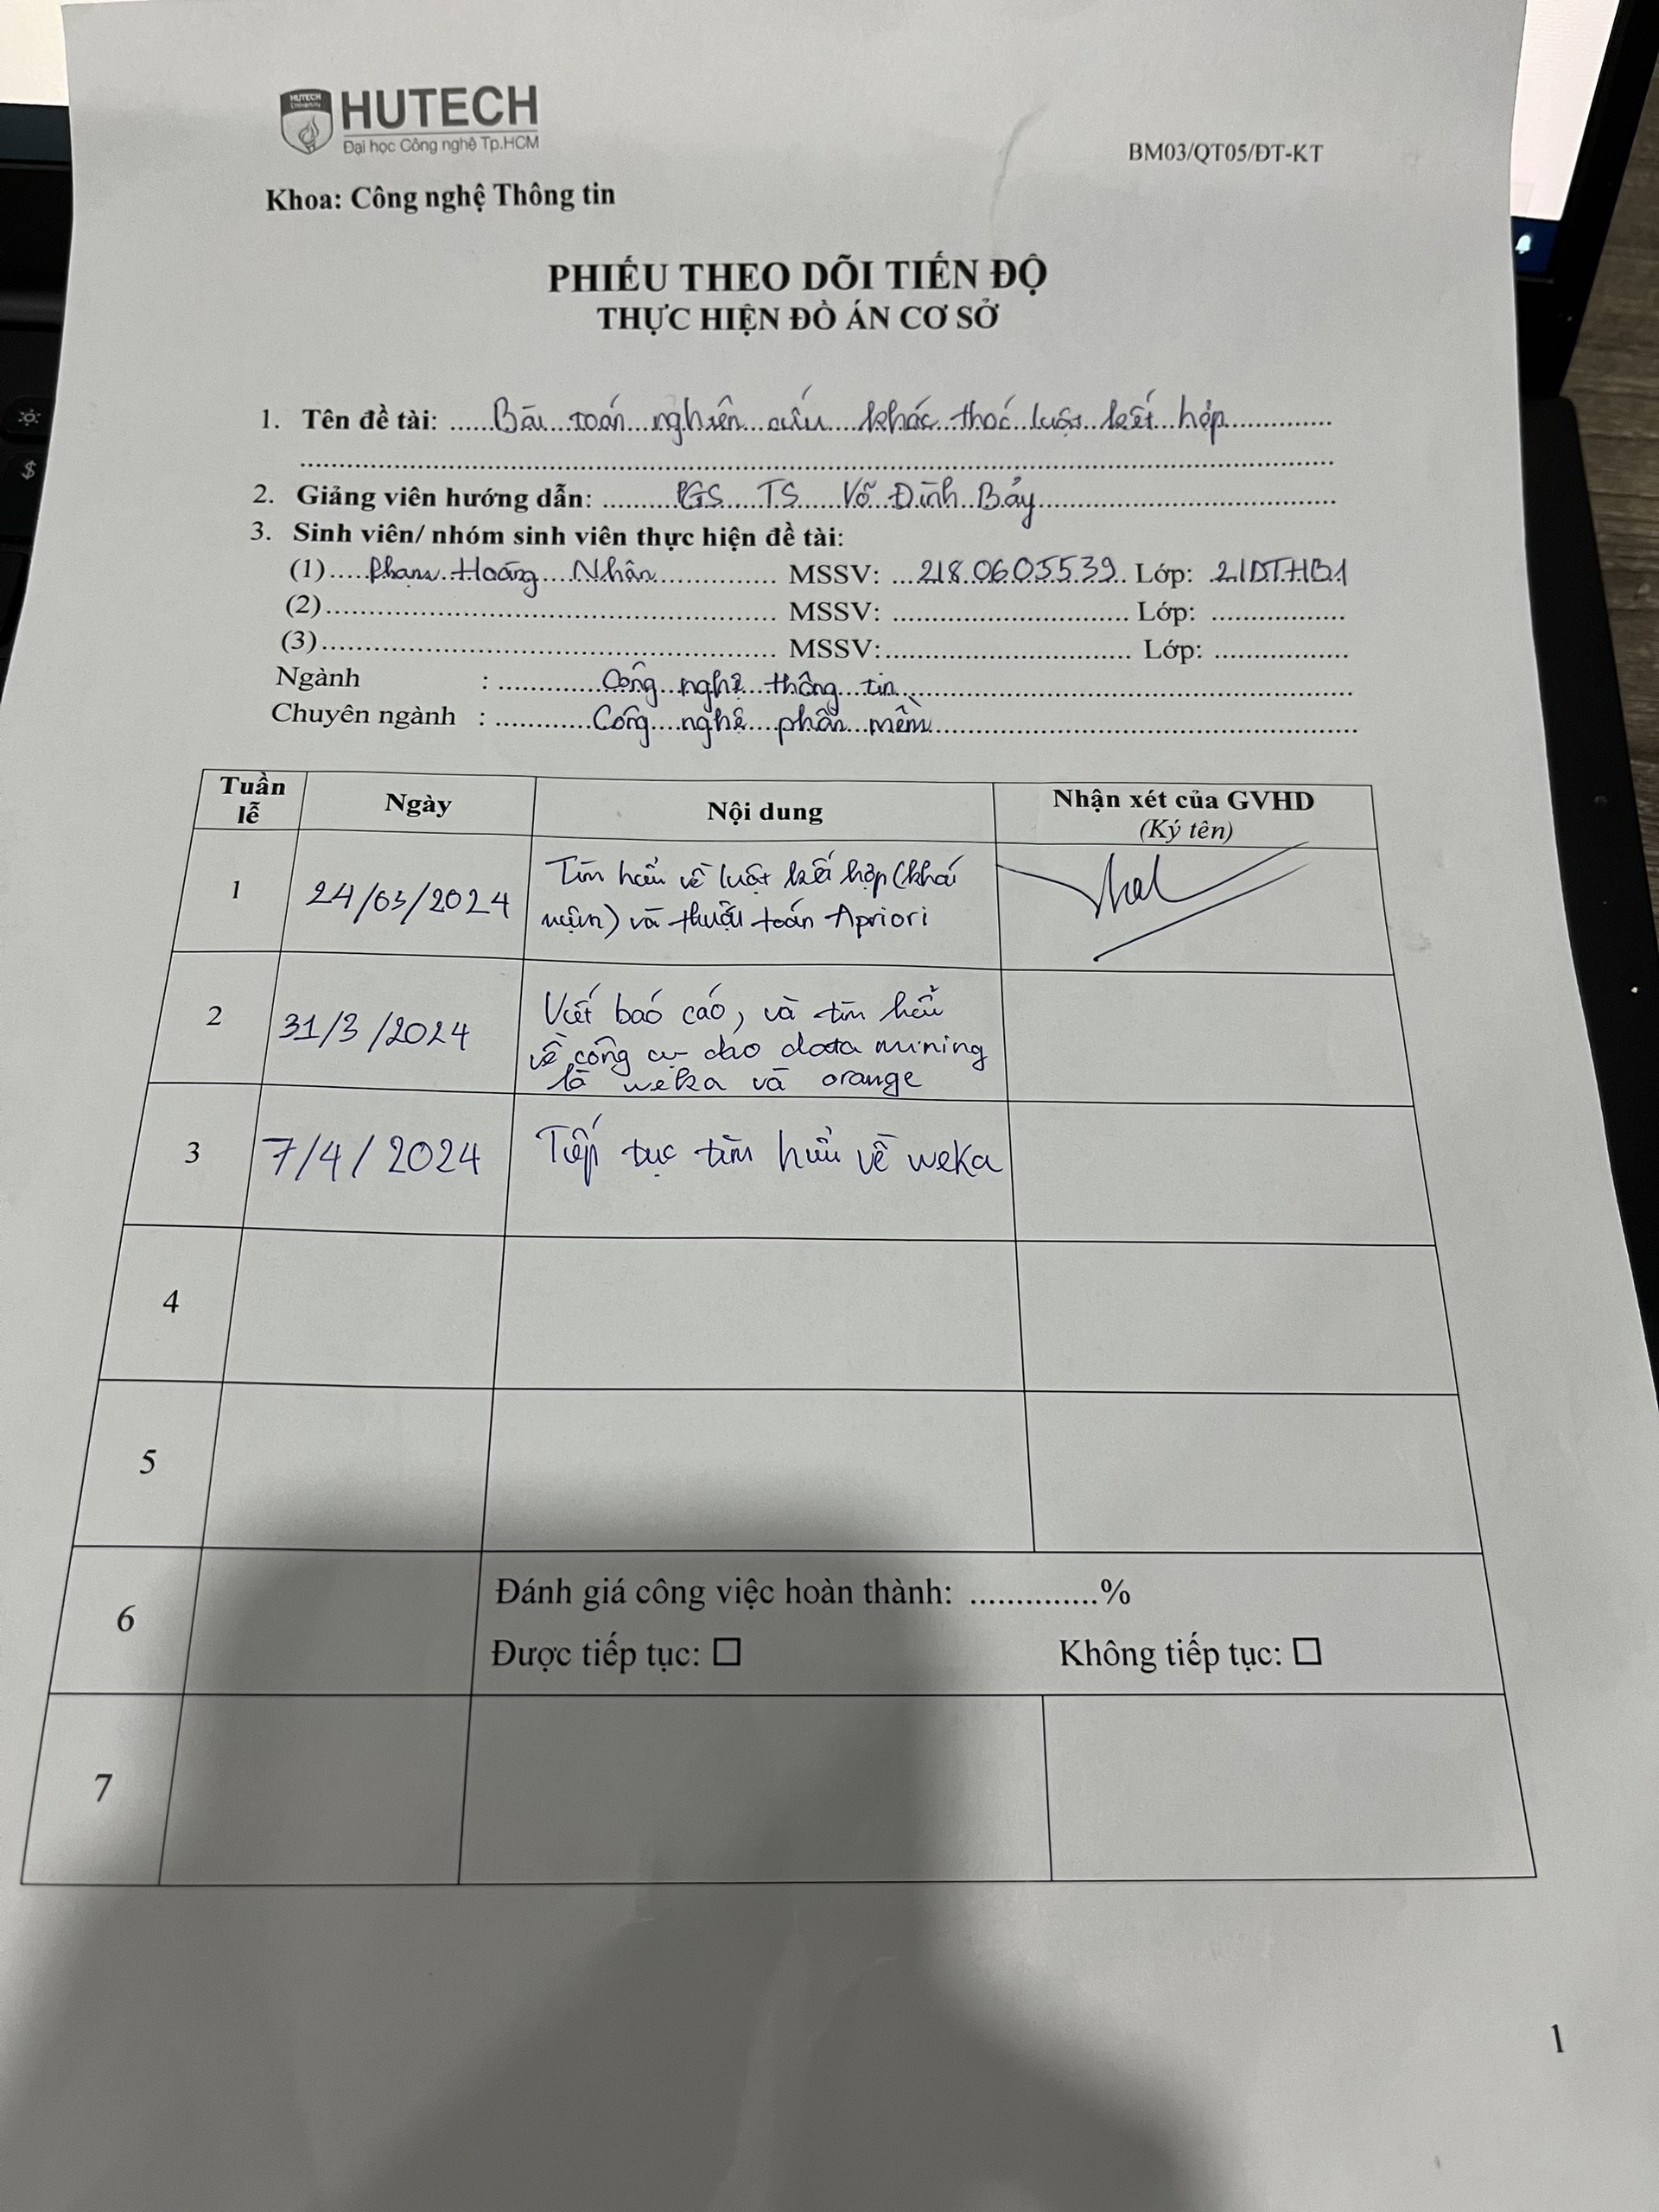 HUTECH
University
HUTECH
Đại học Công nghệ Tp.HCM
BM03/QT05/ĐT-KT
Khoa: Công nghệ Thông tin
PHIẾU THEO DÕI TIẾN ĐỘ
THỰC HIỆN ĐỒ ÁN CƠ SỞ
1. Tên đề tài: ......Bài toán nghiên cứu khác thác luật kết hợp..............
..............................................................................
2. Giảng viên hướng dẫn: ..........PGS TS Võ Đình Bảy..............................
3. Sinh viên/ nhóm sinh viên thực hiện đề tài:
(1).....Phạm Hoàng Nhân.............. MSSV: ...2180605539.. Lớp: 21DTHB1
(2)................................................ MSSV: ............................ Lớp: ................
(3)................................................ MSSV:............................. Lớp: ................
Ngành : ............Công nghệ thông tin................................
Chuyên ngành : ...........Công nghệ phần mềm................................
Tuần lễ Ngày Nội dung Nhận xét của GVHD
(Ký tên)
1 24/03/2024 Tìm hiểu về luật kết hợp (khái
niệm) và thuật toán Apriori
2 31/3/2024 Viết báo cáo, và tìm hiểu
về công cụ cho data mining
là weka và orange
3 7/4/2024 Tiếp tục tìm hiểu về weka
4
5
6 Đánh giá công việc hoàn thành: ..............%
Được tiếp tục: ☐ Không tiếp tục: ☐
7
1